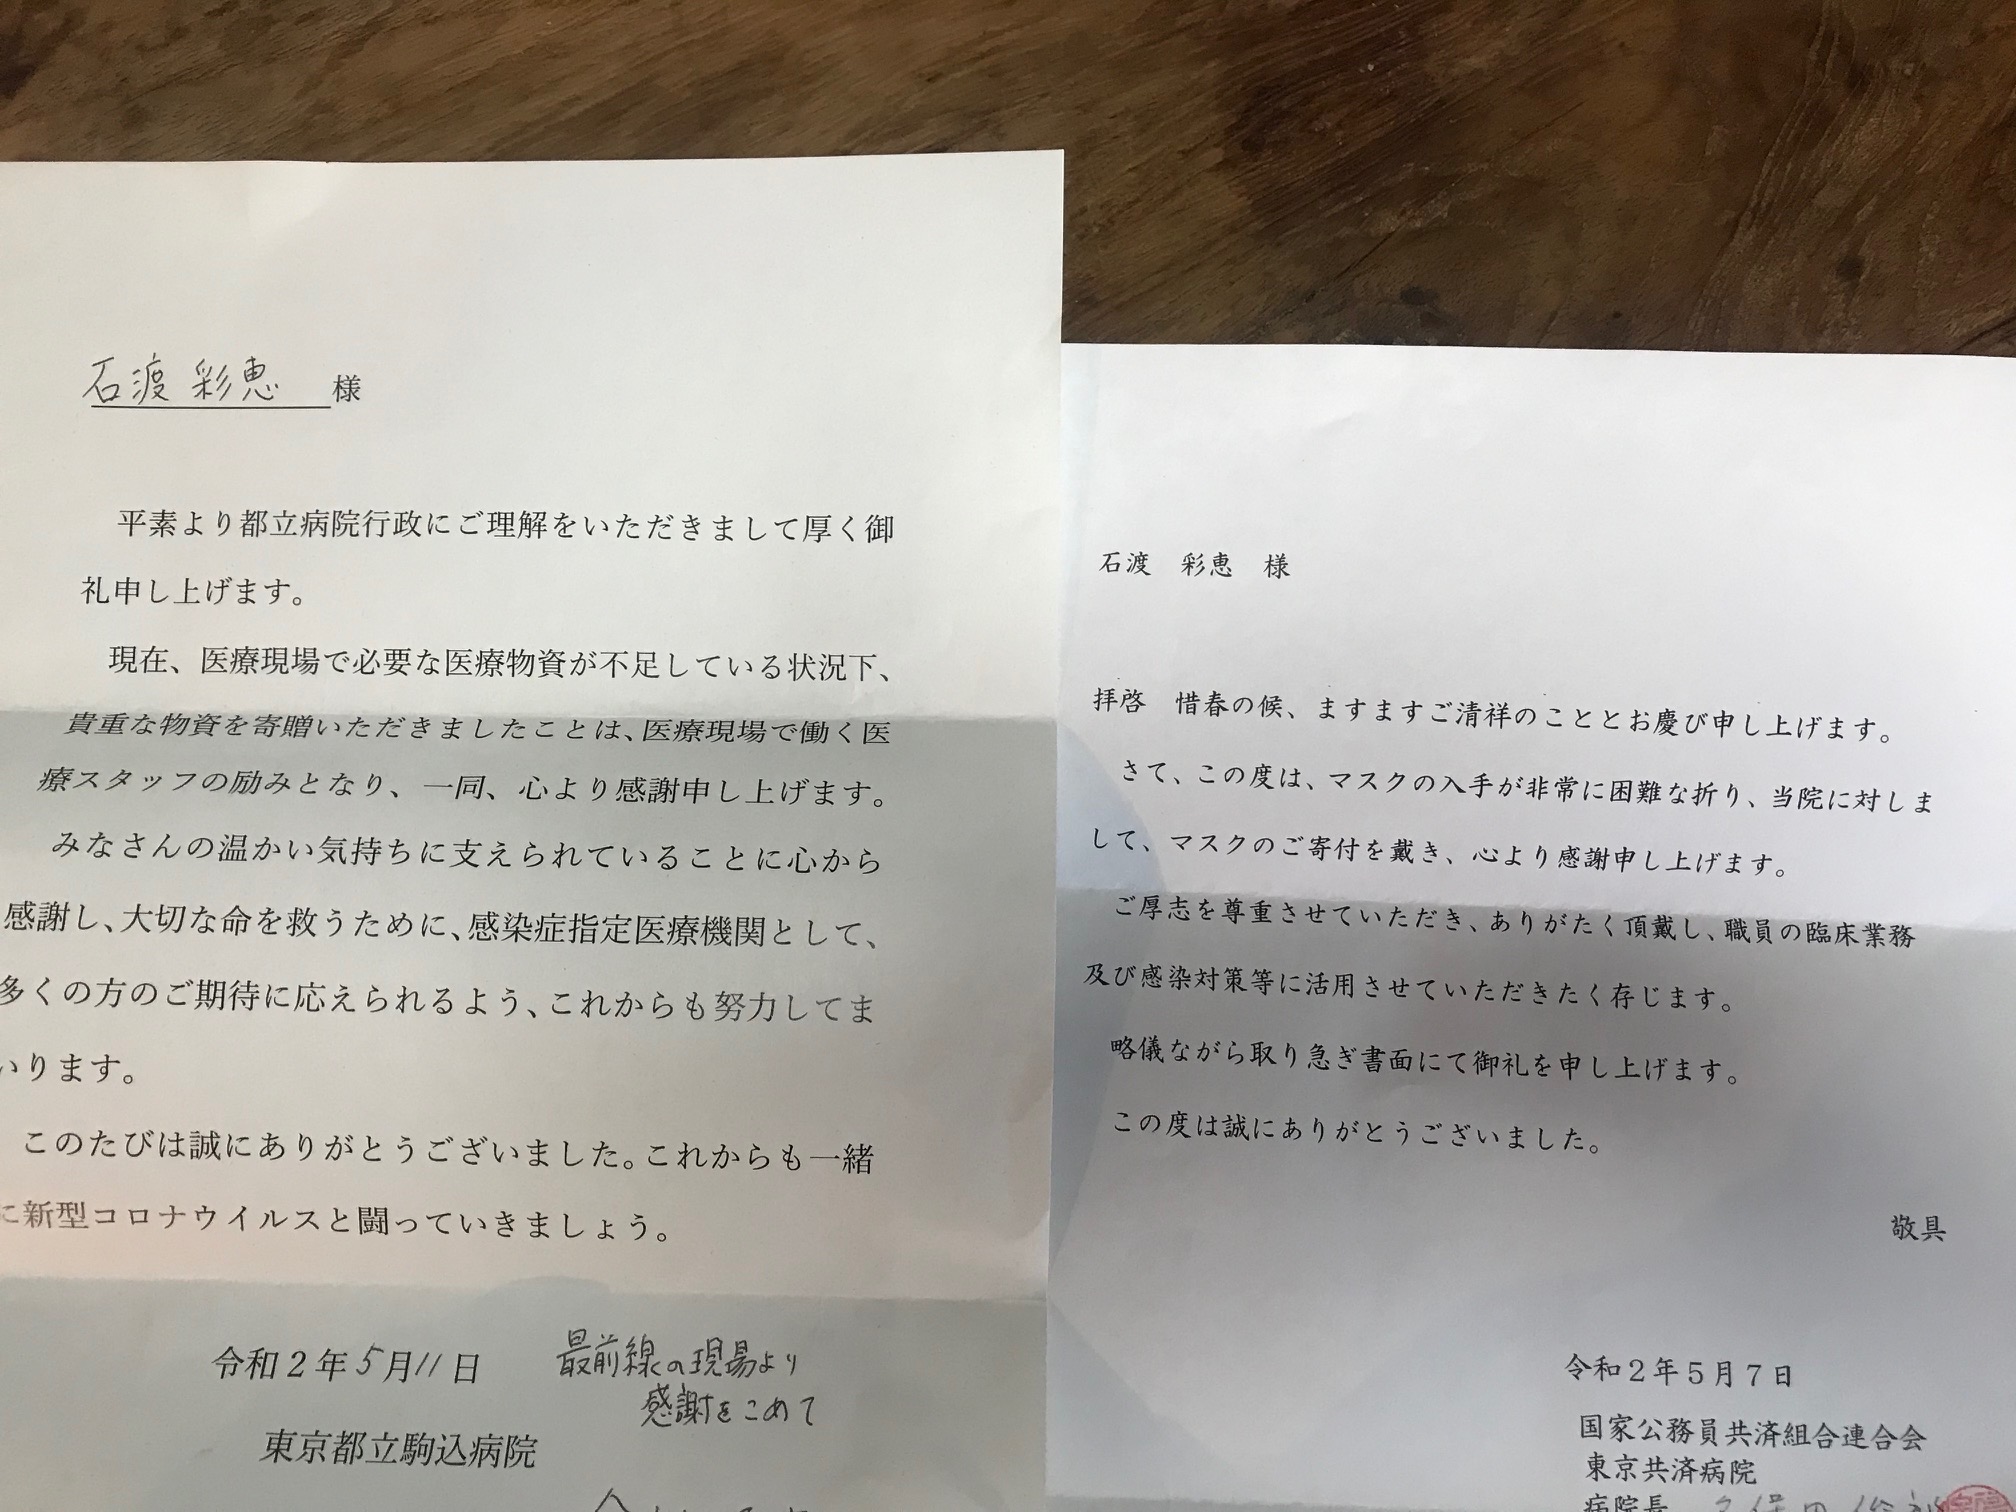 石渡 彩恵 様
平素より都立病院行政にご理解をいただきまして厚く御
礼申し上げます。
現在、医療現場で必要な医療物資が不足している状況下、
貴重な物資を寄贈いただきましたことは、医療現場で働く医
療スタッフの励みとなり、一同、心より感謝申し上げます。
みなさんの温かい気持ちに支えられていることに心から
感謝し、大切な命を救うために、感染症指定医療機関として、
多くの方のご期待に応えられるよう、これからも努力してま
いります。
このたびは誠にありがとうございました。これからも一緒
に新型コロナウイルスと闘っていきましょう。
令和2年5月11日
最前線の現場より
感謝をこめて
東京都立駒込病院
石渡 彩恵 様
拝啓 惜春の候、ますますご清祥のこととお慶び申し上げます。
さて、この度は、マスクの入手が非常に困難な折り、当院に対しま
して、マスクのご寄付を戴き、心より感謝申し上げます。
ご厚志を尊重させていただき、ありがたく頂戴し、職員の臨床業務
及び感染対策等に活用させていただきたく存じます。
略儀ながら取り急ぎ書面にて御礼を申し上げます。
この度は誠にありがとうございました。
敬具
令和2年5月7日
国家公務員共済組合連合会
東京共済病院
病院長